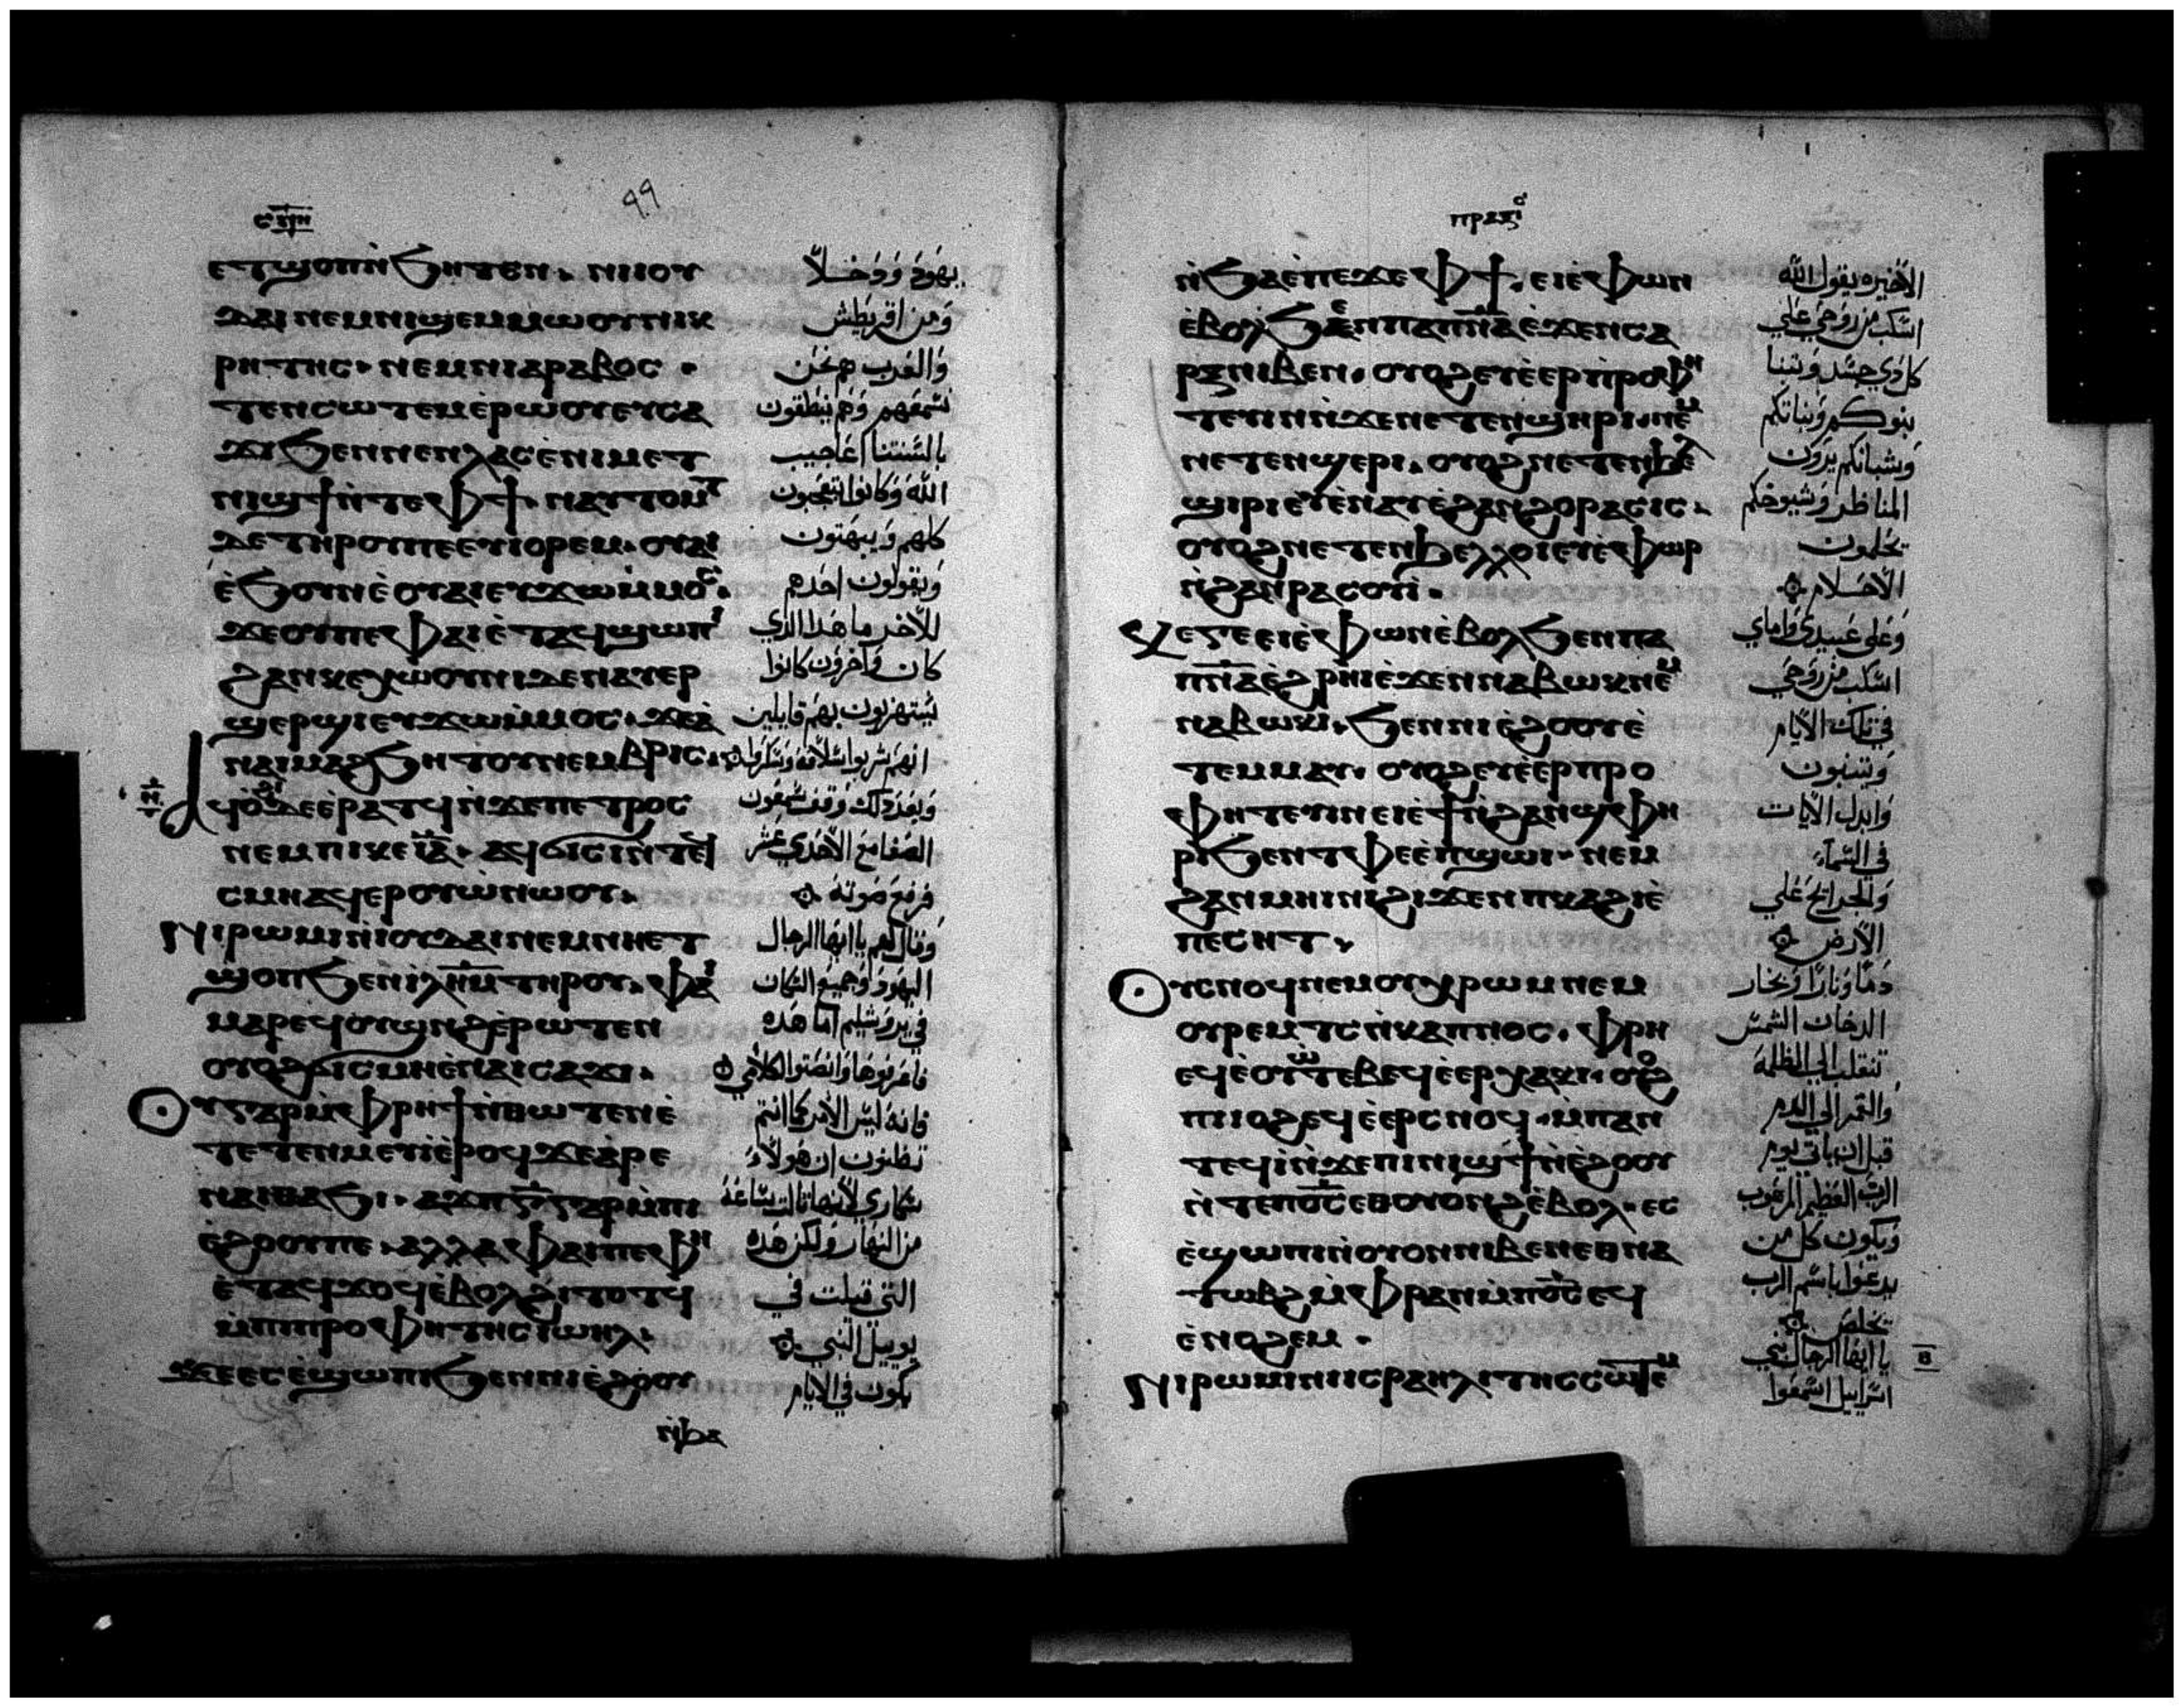 ⲉⲧϣⲟⲡ ⲛ̀ϧⲏⲧⲉⲛ. ⲛⲓⲓⲟⲩ
ⲇⲁⲓ ⲛⲉⲙ ⲛⲓϣⲉⲙⲙⲱⲟⲩ ⲛⲓⲕ
ⲣⲏⲧⲏⲥ. ⲛⲉⲙ ⲛⲓⲁⲣⲁⲃⲟⲥ.
ⲧⲉⲛⲥⲱⲧⲉⲙ ⲉ̀ⲣⲱⲟⲩ ⲉⲩⲥⲁ
ϫⲓ ϧⲉⲛ ⲛⲉⲛⲗⲁⲥ ⲉ̀ⲛⲓⲙⲉⲧ
ⲛⲓϣϯ ⲛ̀ⲧⲉ ⲫϯ. ⲛⲁⲩⲧⲟⲙⲧ
ⲇⲉ ⲧⲏⲣⲟⲩ ⲡⲉ ⲉⲩⲓⲟⲣⲉⲙ. ⲟⲩⲁⲓ
ⲉ̀ϧⲟⲩⲛ ⲉ̀ⲟⲩⲁⲓ ⲉⲩϫⲱ ⲙ̀ⲙⲟⲥ.
ϫⲉ ⲟⲩ ⲡⲉ ⲫⲁⲓ ⲉ̀ⲧⲁϥϣⲱⲡⲓ
ϩⲁⲛⲕⲉⲭⲱⲟⲩⲛⲓ ⲇⲉ ⲛⲁⲩⲉⲣ
ϣⲉⲣϣⲓ ⲉⲩϫⲱ ⲙ̀ⲙⲟⲥ. ϫⲉ ⲁ̀
ⲛⲁⲓ ⲙⲁϩ ϧⲏⲧⲟⲩ ⲛⲉⲙⲃⲣⲓⲥ.
ⲁϥⲟ̀ϩⲓ ⲇⲉ ⲉ̀ⲣⲁⲧϥ ⲛ̀ϫⲉ ⲡⲉⲧⲣⲟⲥ
ⲛⲉⲙ ⲡⲓⲕⲉⲓ̅ⲁ̅. ⲁϥϭⲓⲥⲓ ⲛ̀ⲧⲉϥ
ⲥⲙⲏ ⲁϥⲉⲣⲟⲩⲱ̀ ⲛⲱⲟⲩ.
ⲛⲓⲣⲱⲙⲓ ⲛ̀ⲓⲟⲩⲇⲁⲓ ⲛⲉⲙ ⲛⲏⲉⲧ
ϣⲟⲡ ϧⲉⲛ ⲓ̀ⲗ̅ⲏ̅ⲙ̅ ⲧⲏⲣⲟⲩ. ⲫⲁⲓ
ⲙⲁⲣⲉϥⲟⲩⲱⲛϩ ⲉ̀ⲣⲱⲧⲉⲛ
ⲟⲩⲟϩ ϭⲓⲥⲙⲏ ⲉ̀ⲛⲁⲥⲁϫⲓ.
ⲟⲩ ⲅⲁⲣ ⲙ̀ⲫⲣⲏϯ ⲛ̀ⲑⲱⲧⲉⲛ ⲉ̀
ⲧⲉⲧⲉⲛⲙⲉⲩⲓ ⲉ̀ⲣⲟϥ ϫⲉ ⲁ̀ⲣⲉ
ⲛⲁⲓ ⲑⲁϧⲓ. ⲁϫⲡ ⲅ̅ ⲅⲁⲣ ⲙ̀ⲡⲓ
ⲉ̀ϩⲟⲟⲩ ⲡⲉ. ⲁⲗⲗⲁ ⲫⲁⲓ ⲡⲉ ⲫⲏ
ⲉ̀ⲧⲁϥϫⲟϥ ⲉ̀ⲃⲟⲗ ϩⲓⲧⲟⲧϥ
ⲙ̀ⲡⲓⲡⲣⲟⲫⲏⲧⲏⲥ ⲓⲱⲏⲗ.
ϫⲉ ⲉⲥⲉ̀ϣⲱⲡⲓ ϧⲉⲛ ⲛⲓⲉ̀ϩⲟⲟⲩ
ⲛ̀ϧⲁⲉ
يهود ودخلا
ومن اقريطش
والعرب هم نحن
نسمعهم وهم ينطقون
بالسنتنا اعاجيب
الله وكانوا يتعجبون
كلهم ويبهتون
ويقولون احدهم
للآخر ما هذا الذي
كان وآخرون كانوا
يستهزيون بهم قايلين
انهم شربوا سلافة وسكروا
وبعد ذلك وقف سمعون
الصفا مع الاحدي عشر
فرفع صوته
وقال لهم يا ايها الرجال
اليهود وجميع السكان
في يروشليم اما هذه
فاعرفوها وانصتوا لكلامي
فانه ليس الامر كما انتم
تظنون ان هولاء
سكاري لانها ثالث ساعة
من النهار ولكن هذه
التي قيلت في
يوييل النبي
يكون في الايام
ⲡⲣⲁⲝⲓⲥ
ⲛ̀ϧⲁⲉ̀ ⲡⲉϫⲉ ⲫϯ. ⲉⲓⲉ̀ⲫⲱⲛ
ⲉ̀ⲃⲟⲗ ϧⲉⲛ ⲡⲁⲡ̅ⲛ̅ⲁ̅ ⲉ̀ϫⲉⲛ ⲥⲁ
ⲣⲝ ⲛⲓⲃⲉⲛ. ⲟⲩⲟϩ ⲉⲩⲉ̀ⲉⲣⲡ̀ⲣⲟⲫⲏ
ⲧⲉⲩⲓⲛ ⲛ̀ϫⲉ ⲛⲉⲧⲉⲛϣⲏⲣⲓ. ⲛⲉⲙ
ⲛⲉⲧⲉⲛϣⲉⲣⲓ. ⲟⲩⲟϩ ⲛⲉⲧⲉⲛϧⲉⲗ
ϣⲓⲣⲓ ⲉⲩⲉ̀ⲛⲁⲩ ⲉ̀ϩⲁⲛϩⲟⲣⲁⲥⲓⲥ.
ⲟⲩⲟϩ ⲛⲉⲧⲉⲛϧⲉⲗⲗⲟⲓ ⲉⲩⲉ̀ⲫⲱⲣ
ⲛ̀ϩⲁⲛⲣⲁⲥⲟⲩⲓ̀.
ⲕⲉ ⲅⲉ ⲉⲓⲉ̀ⲫⲱⲛ ⲉ̀ⲃⲟⲗ ϧⲉⲛ ⲡⲁ
ⲡ̅ⲛ̅ⲁ̅ ⲉ̀ϩⲣⲏⲓ ⲉ̀ϫⲉⲛ ⲛⲁⲃⲱⲕ ⲛⲉⲙ
ⲛⲁⲃⲱⲕⲓ. ϧⲉⲛ ⲛⲓⲉ̀ϩⲟⲟⲩ ⲉ̀
ⲧⲉⲙⲙⲁⲩ. ⲟⲩⲟϩ ⲉⲩⲉ̀ⲉⲣⲡⲣⲟ
ⲫⲏⲧⲉⲩⲓⲛ ⲉⲓⲉ̀ϯ ⲛ̀ϩⲁⲛϣⲫⲏ
ⲣⲓ ϧⲉⲛ ⲧⲫⲉ ⲉ̀ⲡϣⲱⲓ. ⲛⲉⲙ
ϩⲁⲛⲙⲏⲓⲛⲓ ϩⲓϫⲉⲛ ⲡⲕⲁϩⲓ ⲉ̀
ⲡⲉⲥⲏⲧ.
ⲟⲩⲥⲛⲟϥ ⲛⲉⲙ ⲟⲩⲭⲣⲱⲙ ⲛⲉⲙ
ⲟⲩⲣⲉⲙⲧⲥ ⲛ̀ⲕⲁⲡⲛⲟⲥ. ⲫⲣⲏ
ⲉϥⲉ̀ⲟⲩⲱⲧⲉⲃ ⲉϥⲉ̀ⲉⲣⲭⲁⲕⲓ. ⲟⲩⲟϩ
ⲡⲓⲓⲟϩ ⲉϥⲉ̀ⲉⲣⲥⲛⲟϥ. ⲙ̀ⲡⲁⲛ
ⲧⲉϥⲓ̀ ⲛ̀ϫⲉ ⲡⲓⲛⲓϣϯ ⲛ̀ⲉ̀ϩⲟⲟⲩ
ⲛ̀ⲧⲉ ⲡⲟ̅ⲥ̅ ⲉⲑⲟⲩⲟⲛϩ ⲉ̀ⲃⲟⲗ. ⲉⲥ
ⲉ̀ϣⲱⲡⲓ ⲛ̀ⲟⲩⲟⲛ ⲛⲓⲃⲉⲛ ⲉⲑⲛⲁ
ⲧⲱⲃϩ ⲙ̀ⲫⲣⲁⲛ ⲙ̀ⲡⲟ̅ⲥ̅ ⲉϥ
ⲉ̀ⲛⲟϩⲉⲙ.
ⲛⲓⲣⲱⲙⲓ ⲛⲓⲓⲥⲣⲁⲏⲗⲓⲧⲏⲥ ⲥⲱⲧⲉⲙ
الاخيره يقول الله
اسكب من روحي علي
كل ذي جسد ويتنبا
بنوكم وبناتكم
وشبانكم يرون
المناظر وشيوخكم
يحلمون
الاحلام
وعلى عبيدي واماي
اسكب من روحي
في تلك الايام
ويتنبون
وابدل الآيات
في السماء
والجرائح علي
الارض
دما ونارا وبخار
الدخان الشمس
تنقلب الي الظلمة
والقمر الي الدم
قبل ان ياتي يوم
الرب العظيم المرهوب
ويكون كل من
يدعوا باسم الرب
يخلص
يا ايها الرجال بني
اسراييل اسمعوا
ⲃ